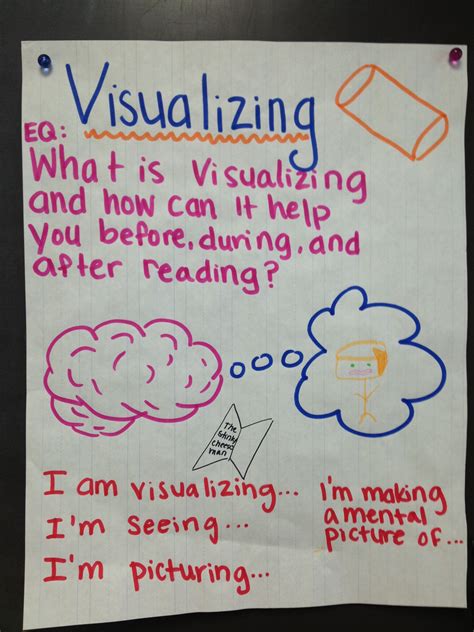 Visualizing
EQ:
What is Visualizing
and how can it help
you before, during, and
after reading?
The
Stinky
Cheese
man
I am visualizing...
I'm seeing...
I'm picturing...
I'm making
a mental
picture of...